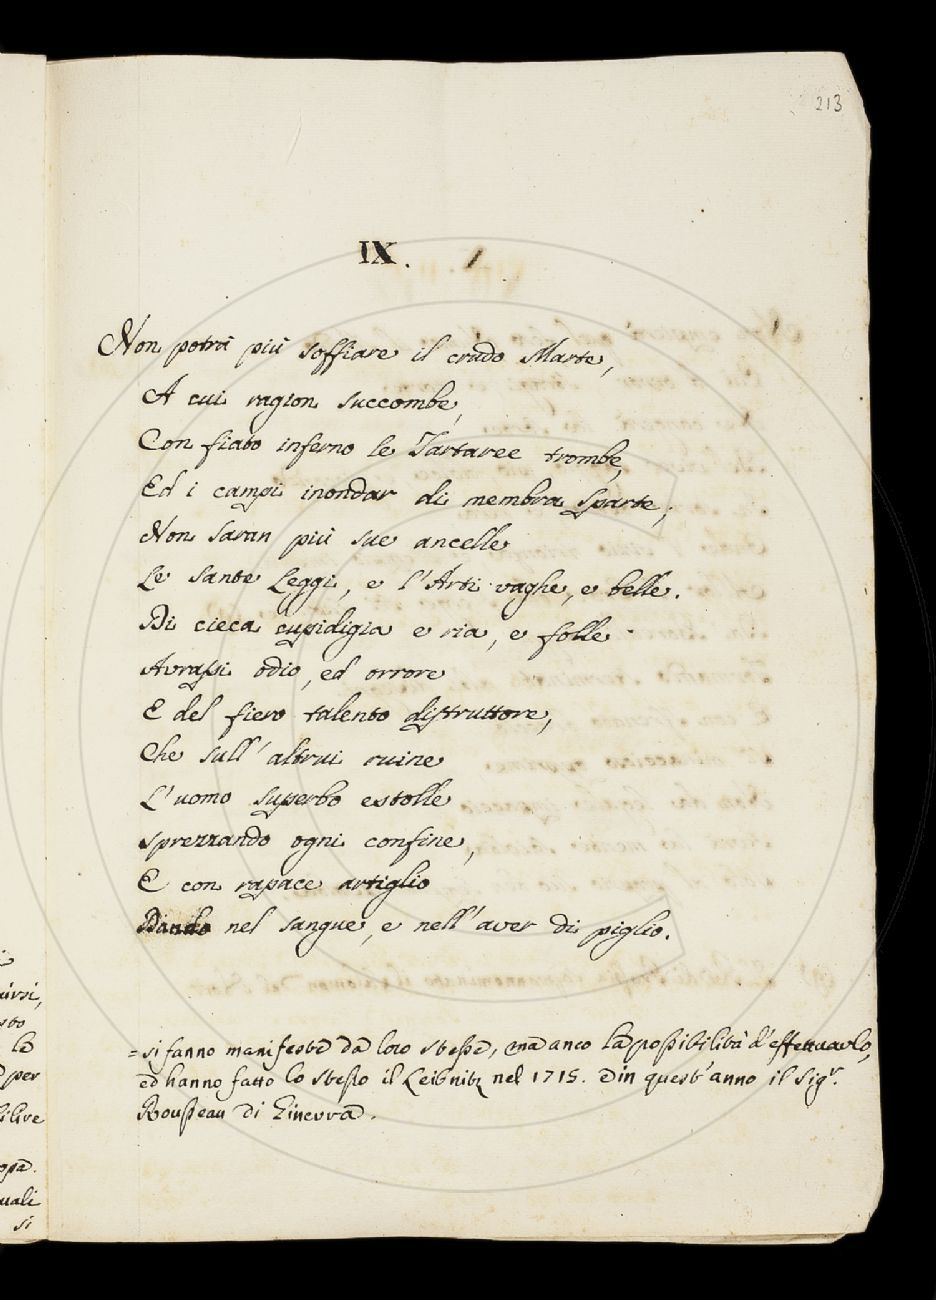 213
IX.
Non potrà più soffiare il crudo Marte,
A cui ragion succombe,
Con fiato inferno le Tartaree trombe,
Ed i campi inondar di membra sparte;
Non saran più sue ancelle
Le sante Leggi, e l'Arti vaghe, e belle.
Di cieca cupidigia e ria, e folle
Avrassi odio, ed orrore
E del fiero talento distruttore,
Che sull'altrui ruine
L'uomo superbo estolle
sprezzando ogni confine,
E con rapace artiglio
nel sangue, e nell'aver di piglio.
=si fanno manifeste da loro stesse, ma anco la possibilità d'effettuarlo,
ed hanno fatto lo stesso il Leibnitz nel 1715. e in quest'anno il Sigr.
Rousseau di Ginevra.
sto
la
per
ilire
opa.
uali
si